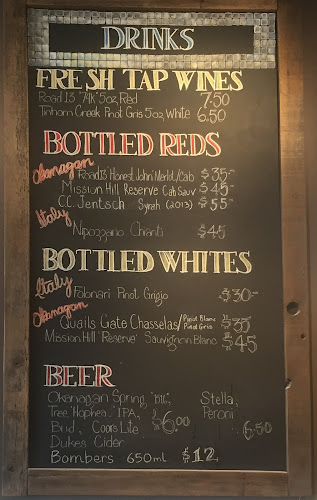 DRINKS
FRESH TAP WINES
Road 13 "74K" 5oz, Red 7.50
Tinhorn Creek Pinot Gris 5oz, White 6.50
BOTTLED REDS
Okanagan
Road 13 'Honest John' Merlot/Cab $35.-
Mission Hill Reserve Cab Sauv $45-
C.C. Jentsch Syrah (2013) $55-
Italy
Nipozzano Chianti $45
BOTTLED WHITES
Italy
Folonari Pinot Grigio $30.-
Okanagan
Quails Gate Chasselas/Pinot Blanc Pinot Gris $35
Mission Hill 'Reserve' Sauvignon Blanc $45
BEER
Okanagan Spring, Stella,
Tree IPA, Peroni
Bud, Coors Lite $6.00 6.50
Dukes Cider
Bombers 650ml $12